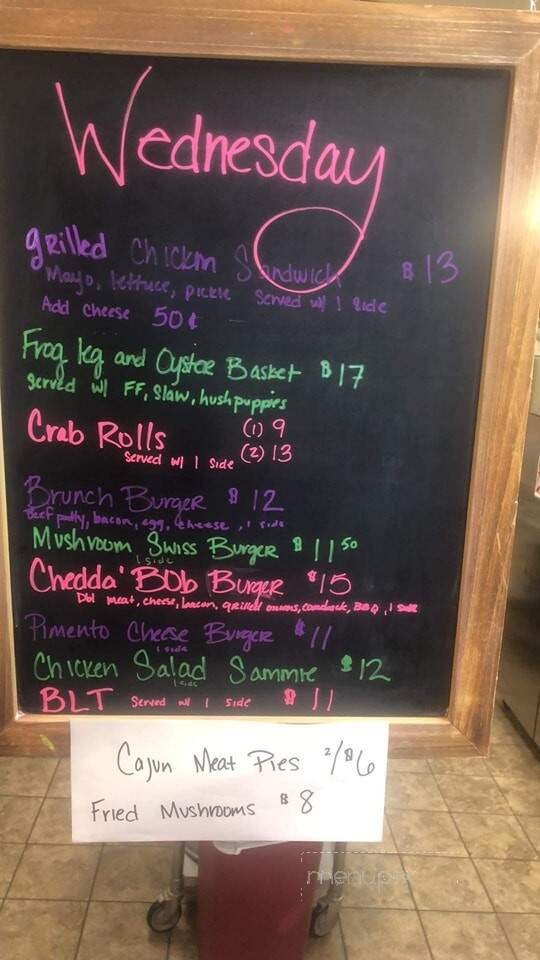 Wednesday
grilled Chicken Sandwich $13
Mayo, lettuce, pickle Served w/ 1 Side
Add Cheese 50¢
Frog leg and Oyster Basket $17
Served w/ FF, Slaw, hushpuppies
Crab Rolls (1) 9
Served w/ 1 Side (2) 13
Brunch Burger $12
Beef patty, bacon, egg, cheese, 1 side
Mushroom Swiss Burger $11 50
1 side
Chedda' BOb Burger $15
Dbl meat, cheese, bacon, grilled onions, comeback, BBQ, 1 side
Pimento Cheese Burger $11
1 side
Chicken Salad Sammie $12
1 side
BLT Served w/ 1 side $11
Cajun Meat Pies 2/$6
Fried Mushrooms $8
menupix